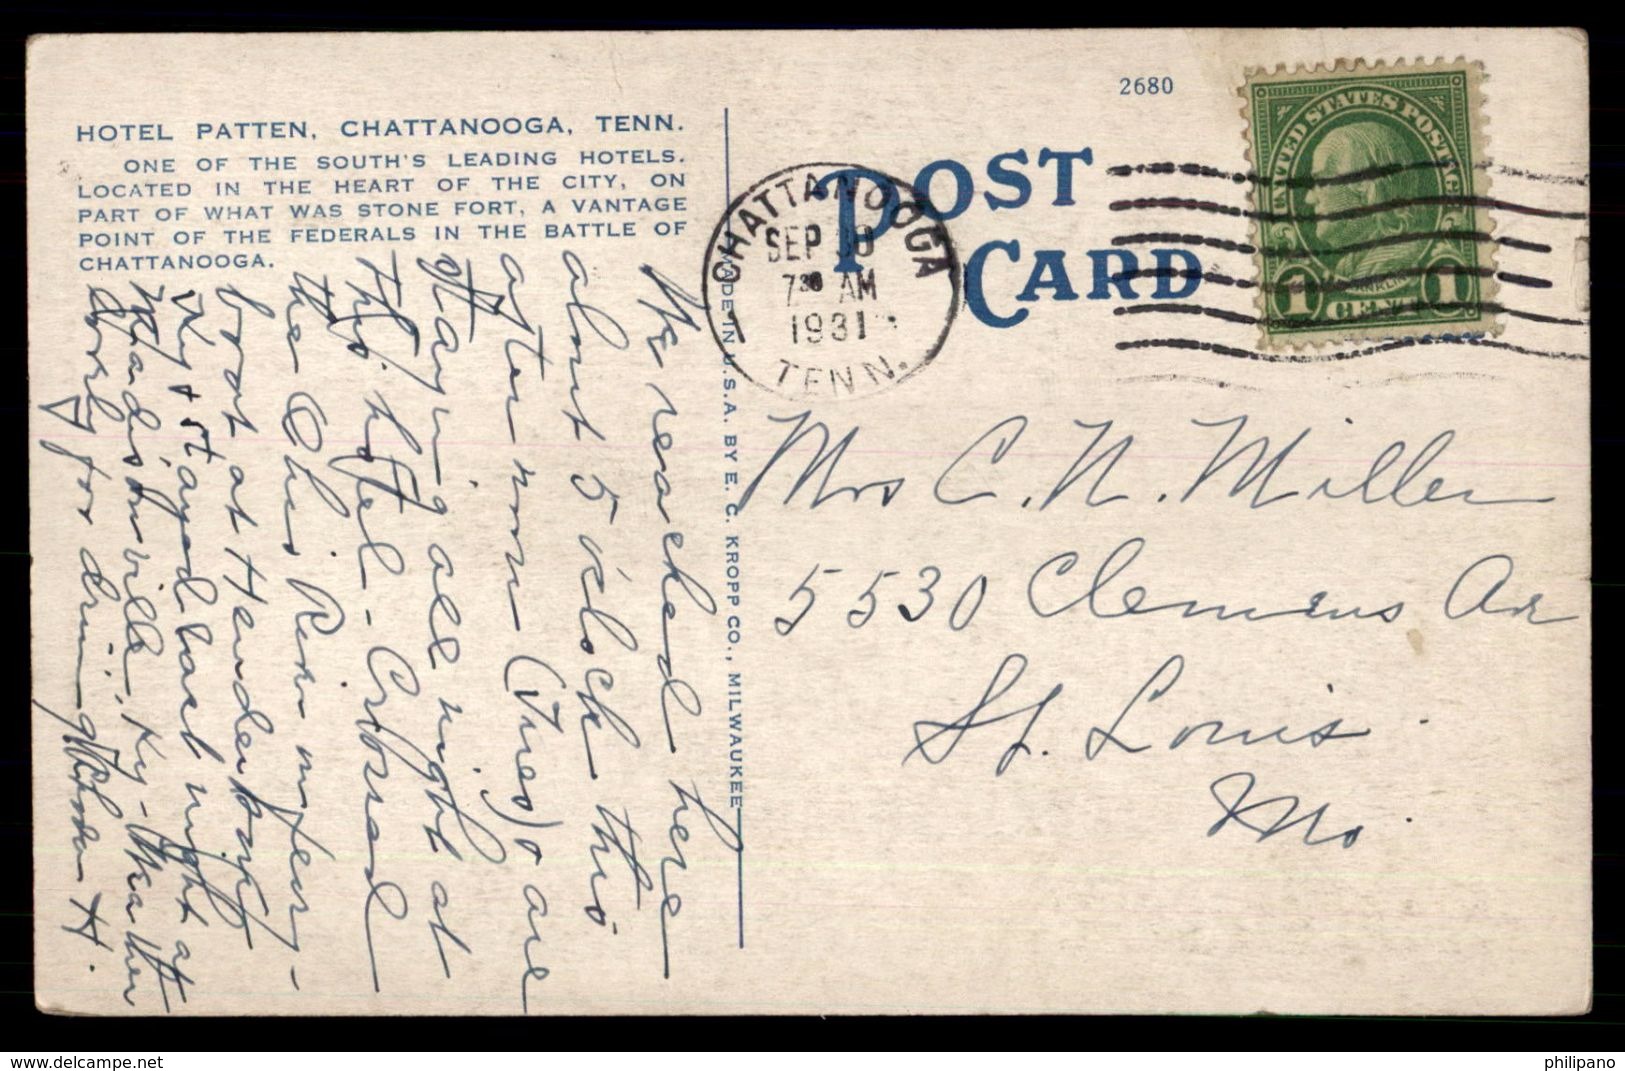 HOTEL PATTEN, CHATTANOOGA, TENN.
ONE OF THE SOUTH'S LEADING HOTELS.
LOCATED IN THE HEART OF THE CITY, ON
PART OF WHAT WAS STONE FORT, A VANTAGE
POINT OF THE FEDERALS IN THE BATTLE OF
CHATTANOOGA.
We reached here
about 5 o'clock this
afternoon (Tues) & are
staying all night at
this hotel - Crossed
the Ohio River on ferry-
boat at Henderson
Ky & stayed last night at
Madisonville, Ky - Weather
lovely for driving
H.
MADE IN U.S.A. BY E. C. KROPP CO., MILWAUKEE
2680
POST
CARD
CHATTANOOGA
SEP 30
7 30 AM
1931
TENN.
UNITED STATES POSTAGE
FRANKLIN
1 CENT 1
Mrs C. N. Miller
5530 Clemens Av
St. Louis
Mo.
www.delcampe.net
philipano